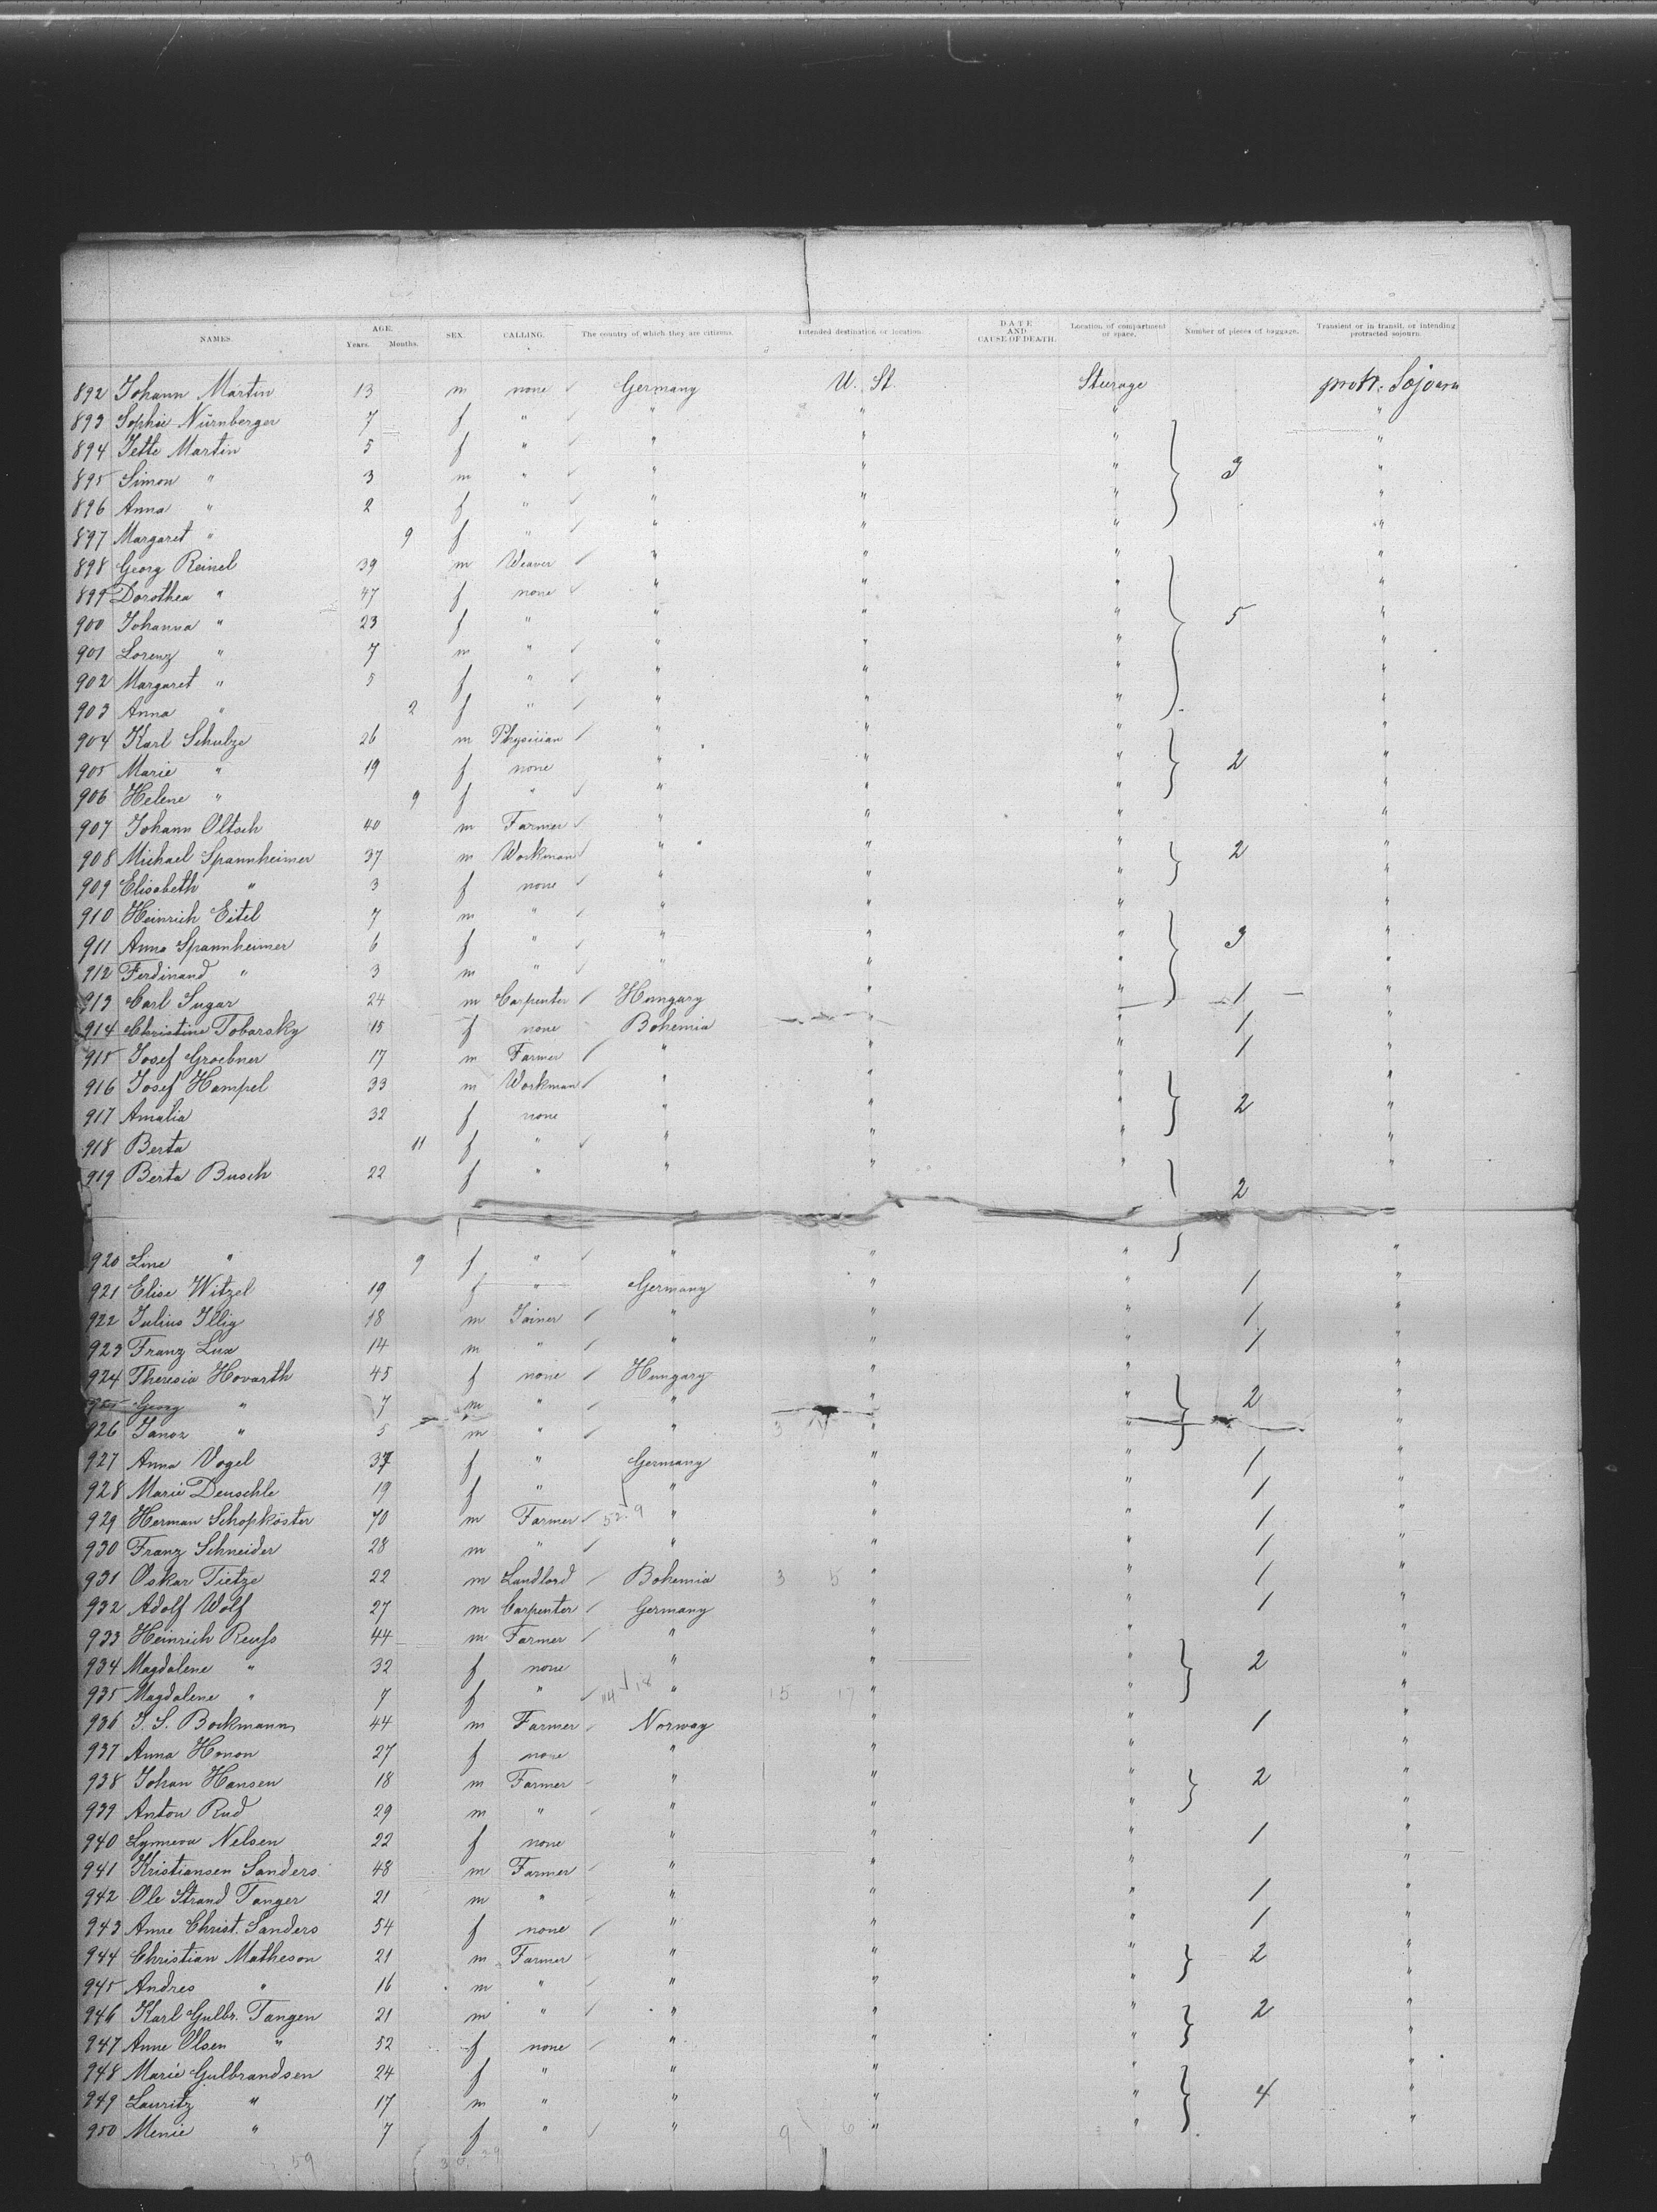 NAMES. AGE. Years. Months. SEX. CALLING. The country of which they are citizens. Intended destination or location. DATE AND CAUSE OF DEATH. Location of compartment or space. Number of pieces of baggage. Transient or in transit, or intending protracted sojourn.
892 Johann Martin 13 m none Germany U. St. Steerage protr. Sojourn
893 Sophie Nürnberger 7 f " " " " "
894 Jette Martin 5 f " " " " "
895 Simon " 3 m " " " " 3 "
896 Anna " 2 f " " " " "
897 Margaret " 9 f " " " " "
898 Georg Reinel 39 m Weaver " " " "
899 Dorothea " 47 f none " " " "
900 Johanna " 23 f " " " " 5 "
901 Lorenz " 7 m " " " " "
902 Margaret " 5 f " " " " "
903 Anna " 2 f " " " " "
904 Karl Schulze 26 m Physician " " " "
905 Marie " 19 f none " " " 2 "
906 Helene " 9 f " " " " "
907 Johann Oltsch 40 m Farmer " " " "
908 Michael Spannheimer 37 m Workman " " " 2 "
909 Elisabeth " 3 f none " " " "
910 Heinrich Eitel 7 m " " " " "
911 Anna Spannheimer 6 f " " " " 3 "
912 Ferdinand " 3 m " " " " "
913 Carl Sugar 24 m Carpenter Hungary " " 1 "
914 Christine Tobarsky 15 f none Bohemia " " 1 "
915 Josef Groebner 17 m Farmer " " " 1 "
916 Josef Hampel 33 m Workman " " " "
917 Amalia 32 f none " " " 2 "
918 Berta 11 f " " " " "
919 Berta Busch 22 f " " " " 2 "
920 Line " 9 f " " " " "
921 Elise Witzel 19 f " Germany " " 1 "
922 Julius Illig 18 m Joiner " " " 1 "
923 Franz Lux 14 m " " " " 1 "
924 Theresia Hovarth 45 f none Hungary " " "
925 Georg " 7 m " " " " 2 "
926 Janoz " 5 m " " " " "
927 Anna Vogel 37 f " Germany " " 1 "
928 Marie Deuschle 19 f " " " " 1 "
929 Herman Schopköster 70 m Farmer " " " 1 "
930 Franz Schneider 28 m " " " " 1 "
931 Oskar Tietze 22 m Landlord Bohemia 3 5 " " 1 "
932 Adolf Wolf 27 m Carpenter Germany " " 1 "
933 Heinrich Reuss 44 m Farmer " " " "
934 Magdalene " 32 f none " " " 2 "
935 Magdalene " 7 f " " 15 17 " " "
936 J. S. Bockmann 44 m Farmer Norway " " 1 "
937 Anna Honon 27 f none " " " "
938 Johan Hansen 18 m Farmer " " " 2 "
939 Anton Rud 29 m " " " " "
940 Lynneva Nelsen 22 f none " " " 1 "
941 Kristiansen Sanders 48 m Farmer " " " "
942 Ole Strand Tanger 21 m " " " " 1 "
943 Anne Christ. Sanders 54 f none " " " 1 "
944 Christian Matheson 21 m Farmer " " " 2 "
945 Andres " 16 m " " " " "
946 Karl Gulbr. Tangen 21 m " " " " 2 "
947 Anne Olsen " 52 f none " " " "
948 Marie Gulbrandsen 24 f " " " " "
949 Lauritz " 17 m " " " " 4 "
950 Menie " 7 f " " 9 6 " " "
59